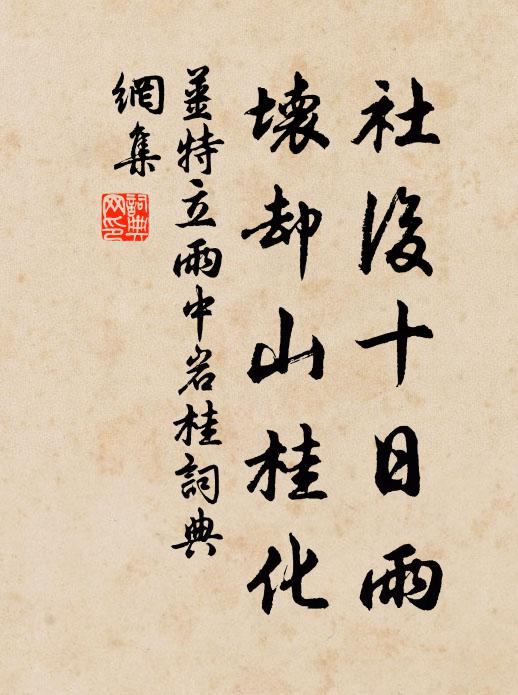 社後十日雨
壞却山桂化
姜特立雨中岩桂詞典
網集
詞典網印